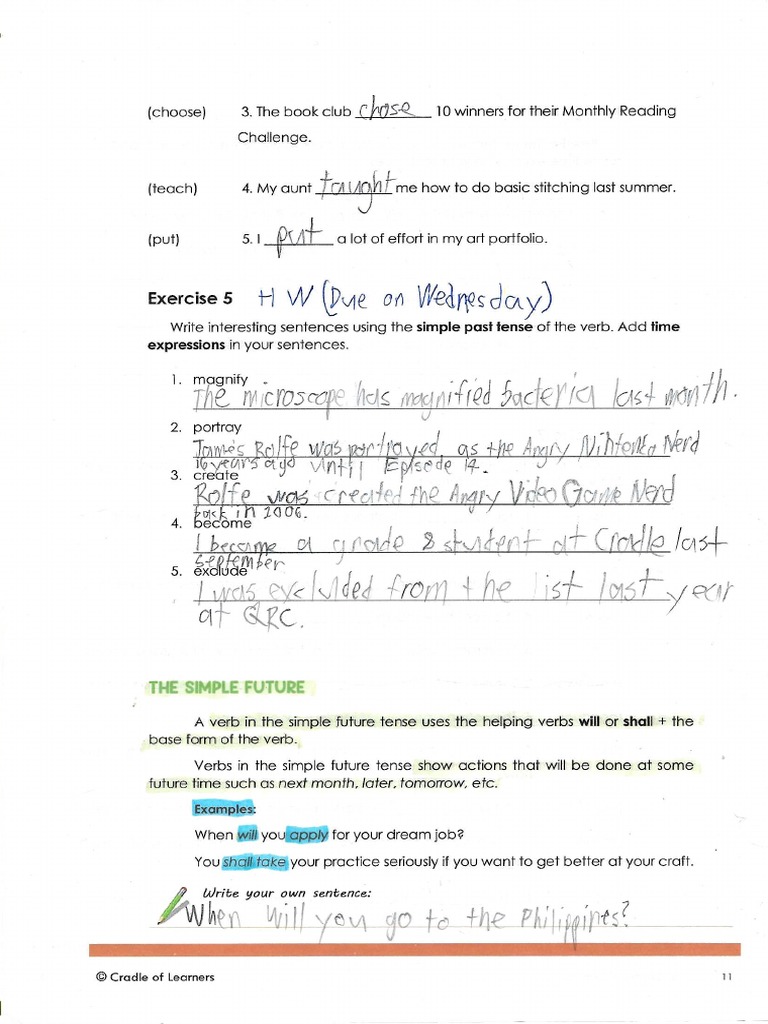 (choose) 3. The book club chose 10 winners for their Monthly Reading
Challenge.
(teach) 4. My aunt taught me how to do basic stitching last summer.
(put) 5. I put a lot of effort in my art portfolio.
Exercise 5 HW (Due on Wednesday)
Write interesting sentences using the simple past tense of the verb. Add time
expressions in your sentences.
1. magnify
The microscope has magnified bacteria last month.
2. portray
James Rolfe was portrayed as the Angry Nintendo Nerd
16 years ago until Episode 14.
3. create
Rolfe was created the Angry Video Game Nerd
back in 2006.
4. become
I became a grade 8 student at Cradle last
September
5. exclude
I was excluded from the list last year
at QRC.
THE SIMPLE FUTURE
A verb in the simple future tense uses the helping verbs will or shall + the
base form of the verb.
Verbs in the simple future tense show actions that will be done at some
future time such as next month, later, tomorrow, etc.
Examples:
When will you apply for your dream job?
You shall take your practice seriously if you want to get better at your craft.
Write your own sentence:
When will you go to the Philippines?
© Cradle of Learners 11